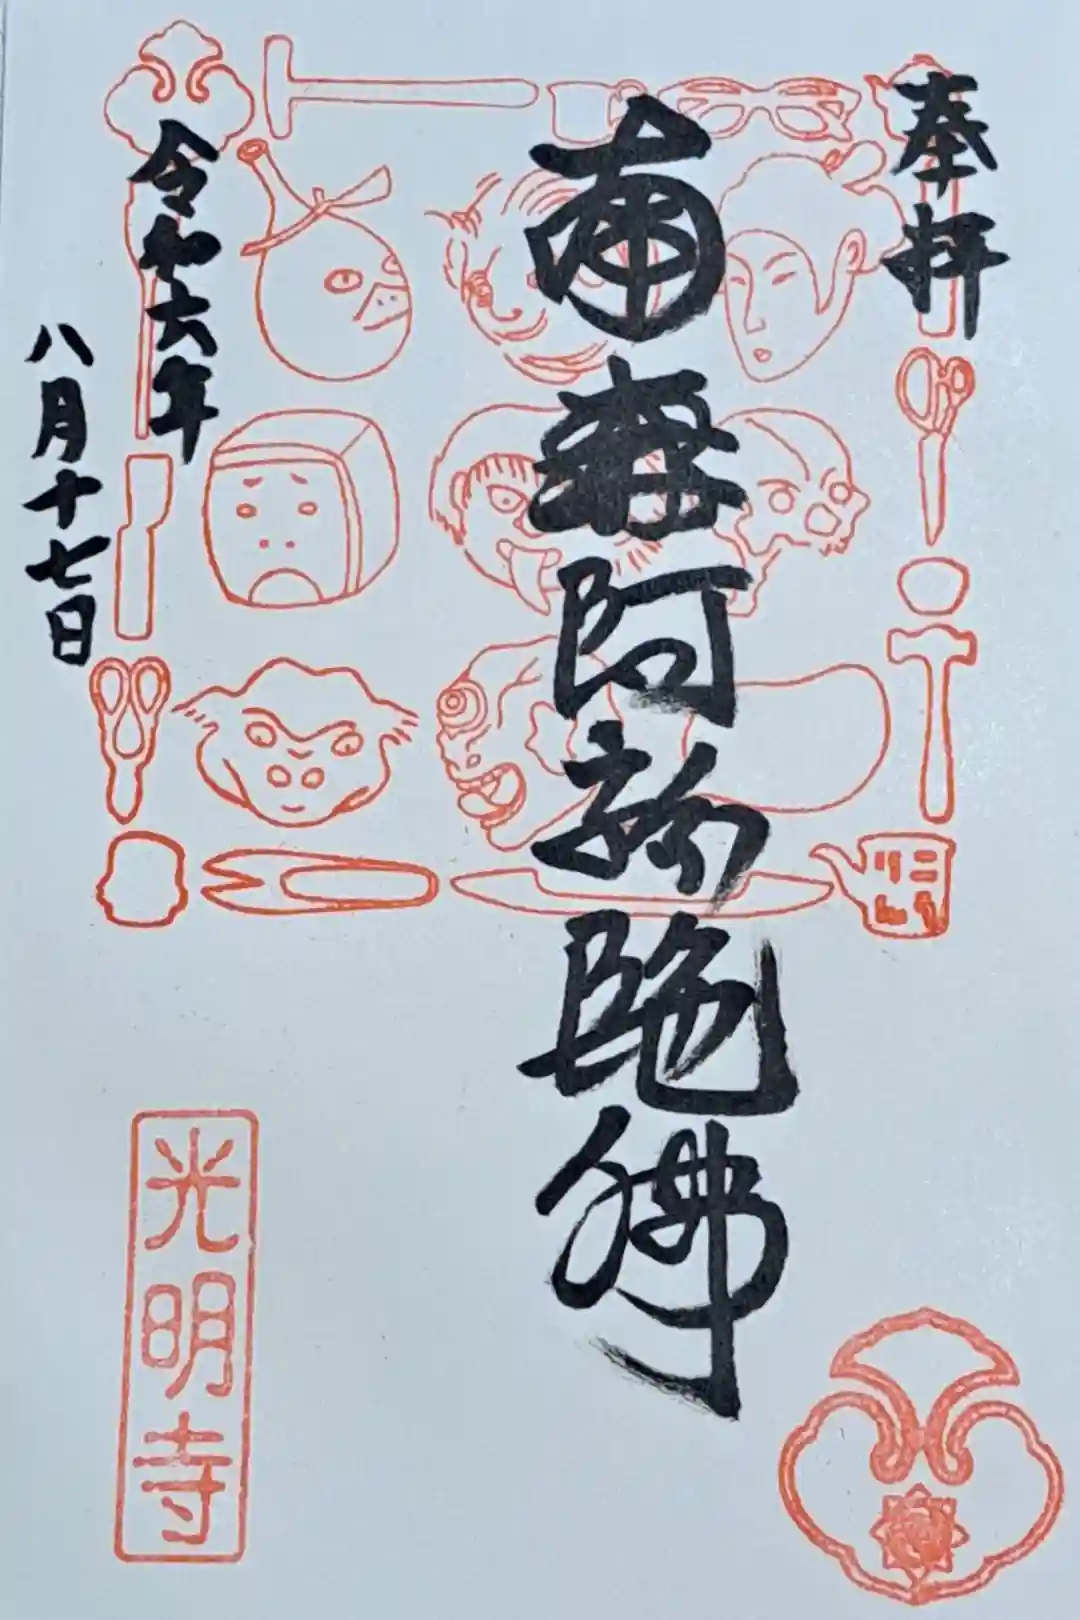 奉拝
南無阿弥陀佛
令和六年
八月十七日
光明寺